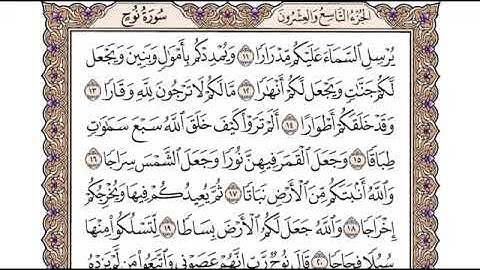 الجُزْءُ التَّاسِعُ وَالعِشْرُونَ
سُورَةُ نُوحٍ
يُرْسِلِ ٱلسَّمَآءَ عَلَيْكُم مِّدْرَارًا ١١ وَيُمْدِدْكُم بِأَمْوَٰلٍ وَبَنِينَ وَيَجْعَل
لَّكُمْ جَنَّٰتٍ وَيَجْعَل لَّكُمْ أَنْهَٰرًا ١٢ مَّا لَكُمْ لَا تَرْجُونَ لِلَّهِ وَقَارًا ١٣
وَقَدْ خَلَقَكُمْ أَطْوَارًا ١٤ أَلَمْ تَرَوْا۟ كَيْفَ خَلَقَ ٱللَّهُ سَبْعَ سَمَٰوَٰتٍ
طِبَاقًا ١٥ وَجَعَلَ ٱلْقَمَرَ فِيهِنَّ نُورًا وَجَعَلَ ٱلشَّمْسَ سِرَاجًا ١٦
وَٱللَّهُ أَنۢبَتَكُم مِّنَ ٱلْأَرْضِ نَبَاتًا ١٧ ثُمَّ يُعِيدُكُمْ فِيهَا وَيُخْرِجُكُمْ
إِخْرَاجًا ١٨ وَٱللَّهُ جَعَلَ لَكُمُ ٱلْأَرْضَ بِسَاطًا ١٩ لِّتَسْلُكُوا۟ مِنْهَا
سُبُلًا فِجَاجًا ٢٠ قَالَ نُوحٌ رَّبِّ إِنَّهُمْ عَصَوْنِى وَٱتَّبَعُوا۟ مَن لَّمْ يَزِدْهُ